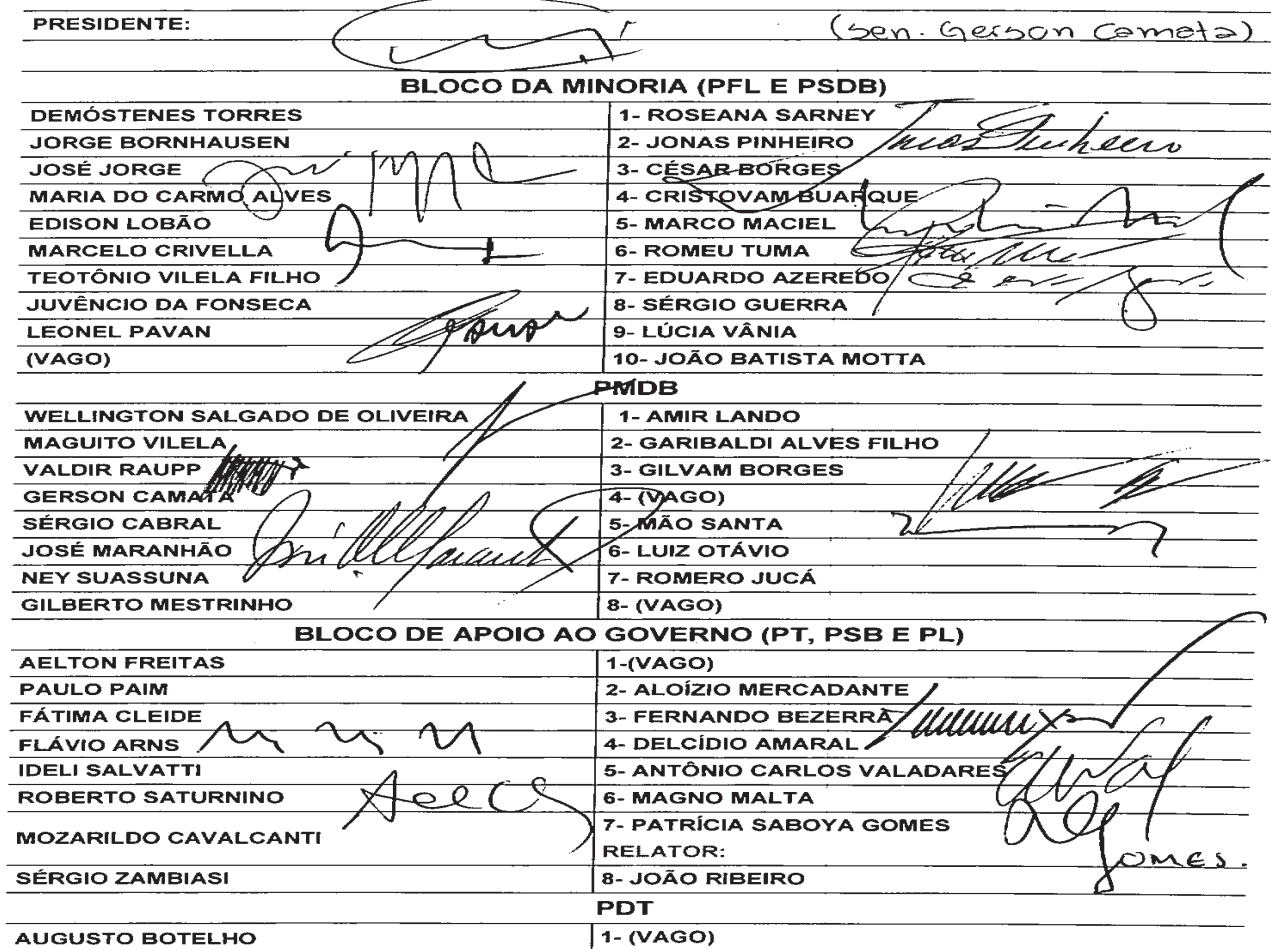 PRESIDENTE: (Sen. Gerson Camata)
BLOCO DA MINORIA (PFL E PSDB)
DEMÓSTENES TORRES 1- ROSEANA SARNEY
JORGE BORNHAUSEN 2- JONAS PINHEIRO Jonas Pinheiro
JOSÉ JORGE 3- CÉSAR BORGES
MARIA DO CARMO ALVES 4- CRISTOVAM BUARQUE
EDISON LOBÃO 5- MARCO MACIEL
MARCELO CRIVELLA 6- ROMEU TUMA
TEOTÔNIO VILELA FILHO 7- EDUARDO AZEREDO
JUVÊNCIO DA FONSECA 8- SÉRGIO GUERRA
LEONEL PAVAN 9- LÚCIA VÂNIA
(VAGO) 10- JOÃO BATISTA MOTTA
PMDB
WELLINGTON SALGADO DE OLIVEIRA 1- AMIR LANDO
MAGUITO VILELA 2- GARIBALDI ALVES FILHO
VALDIR RAUPP 3- GILVAM BORGES
GERSON CAMATA 4- (VAGO)
SÉRGIO CABRAL 5- MÃO SANTA
JOSÉ MARANHÃO 6- LUIZ OTÁVIO
NEY SUASSUNA 7- ROMERO JUCÁ
GILBERTO MESTRINHO 8- (VAGO)
BLOCO DE APOIO AO GOVERNO (PT, PSB E PL)
AELTON FREITAS 1-(VAGO)
PAULO PAIM 2- ALOÍZIO MERCADANTE
FÁTIMA CLEIDE 3- FERNANDO BEZERRA
FLÁVIO ARNS 4- DELCÍDIO AMARAL
IDELI SALVATTI 5- ANTÔNIO CARLOS VALADARES
ROBERTO SATURNINO 6- MAGNO MALTA
MOZARILDO CAVALCANTI 7- PATRÍCIA SABOYA GOMES
RELATOR: GOMES.
SÉRGIO ZAMBIASI 8- JOÃO RIBEIRO
PDT
AUGUSTO BOTELHO 1- (VAGO)